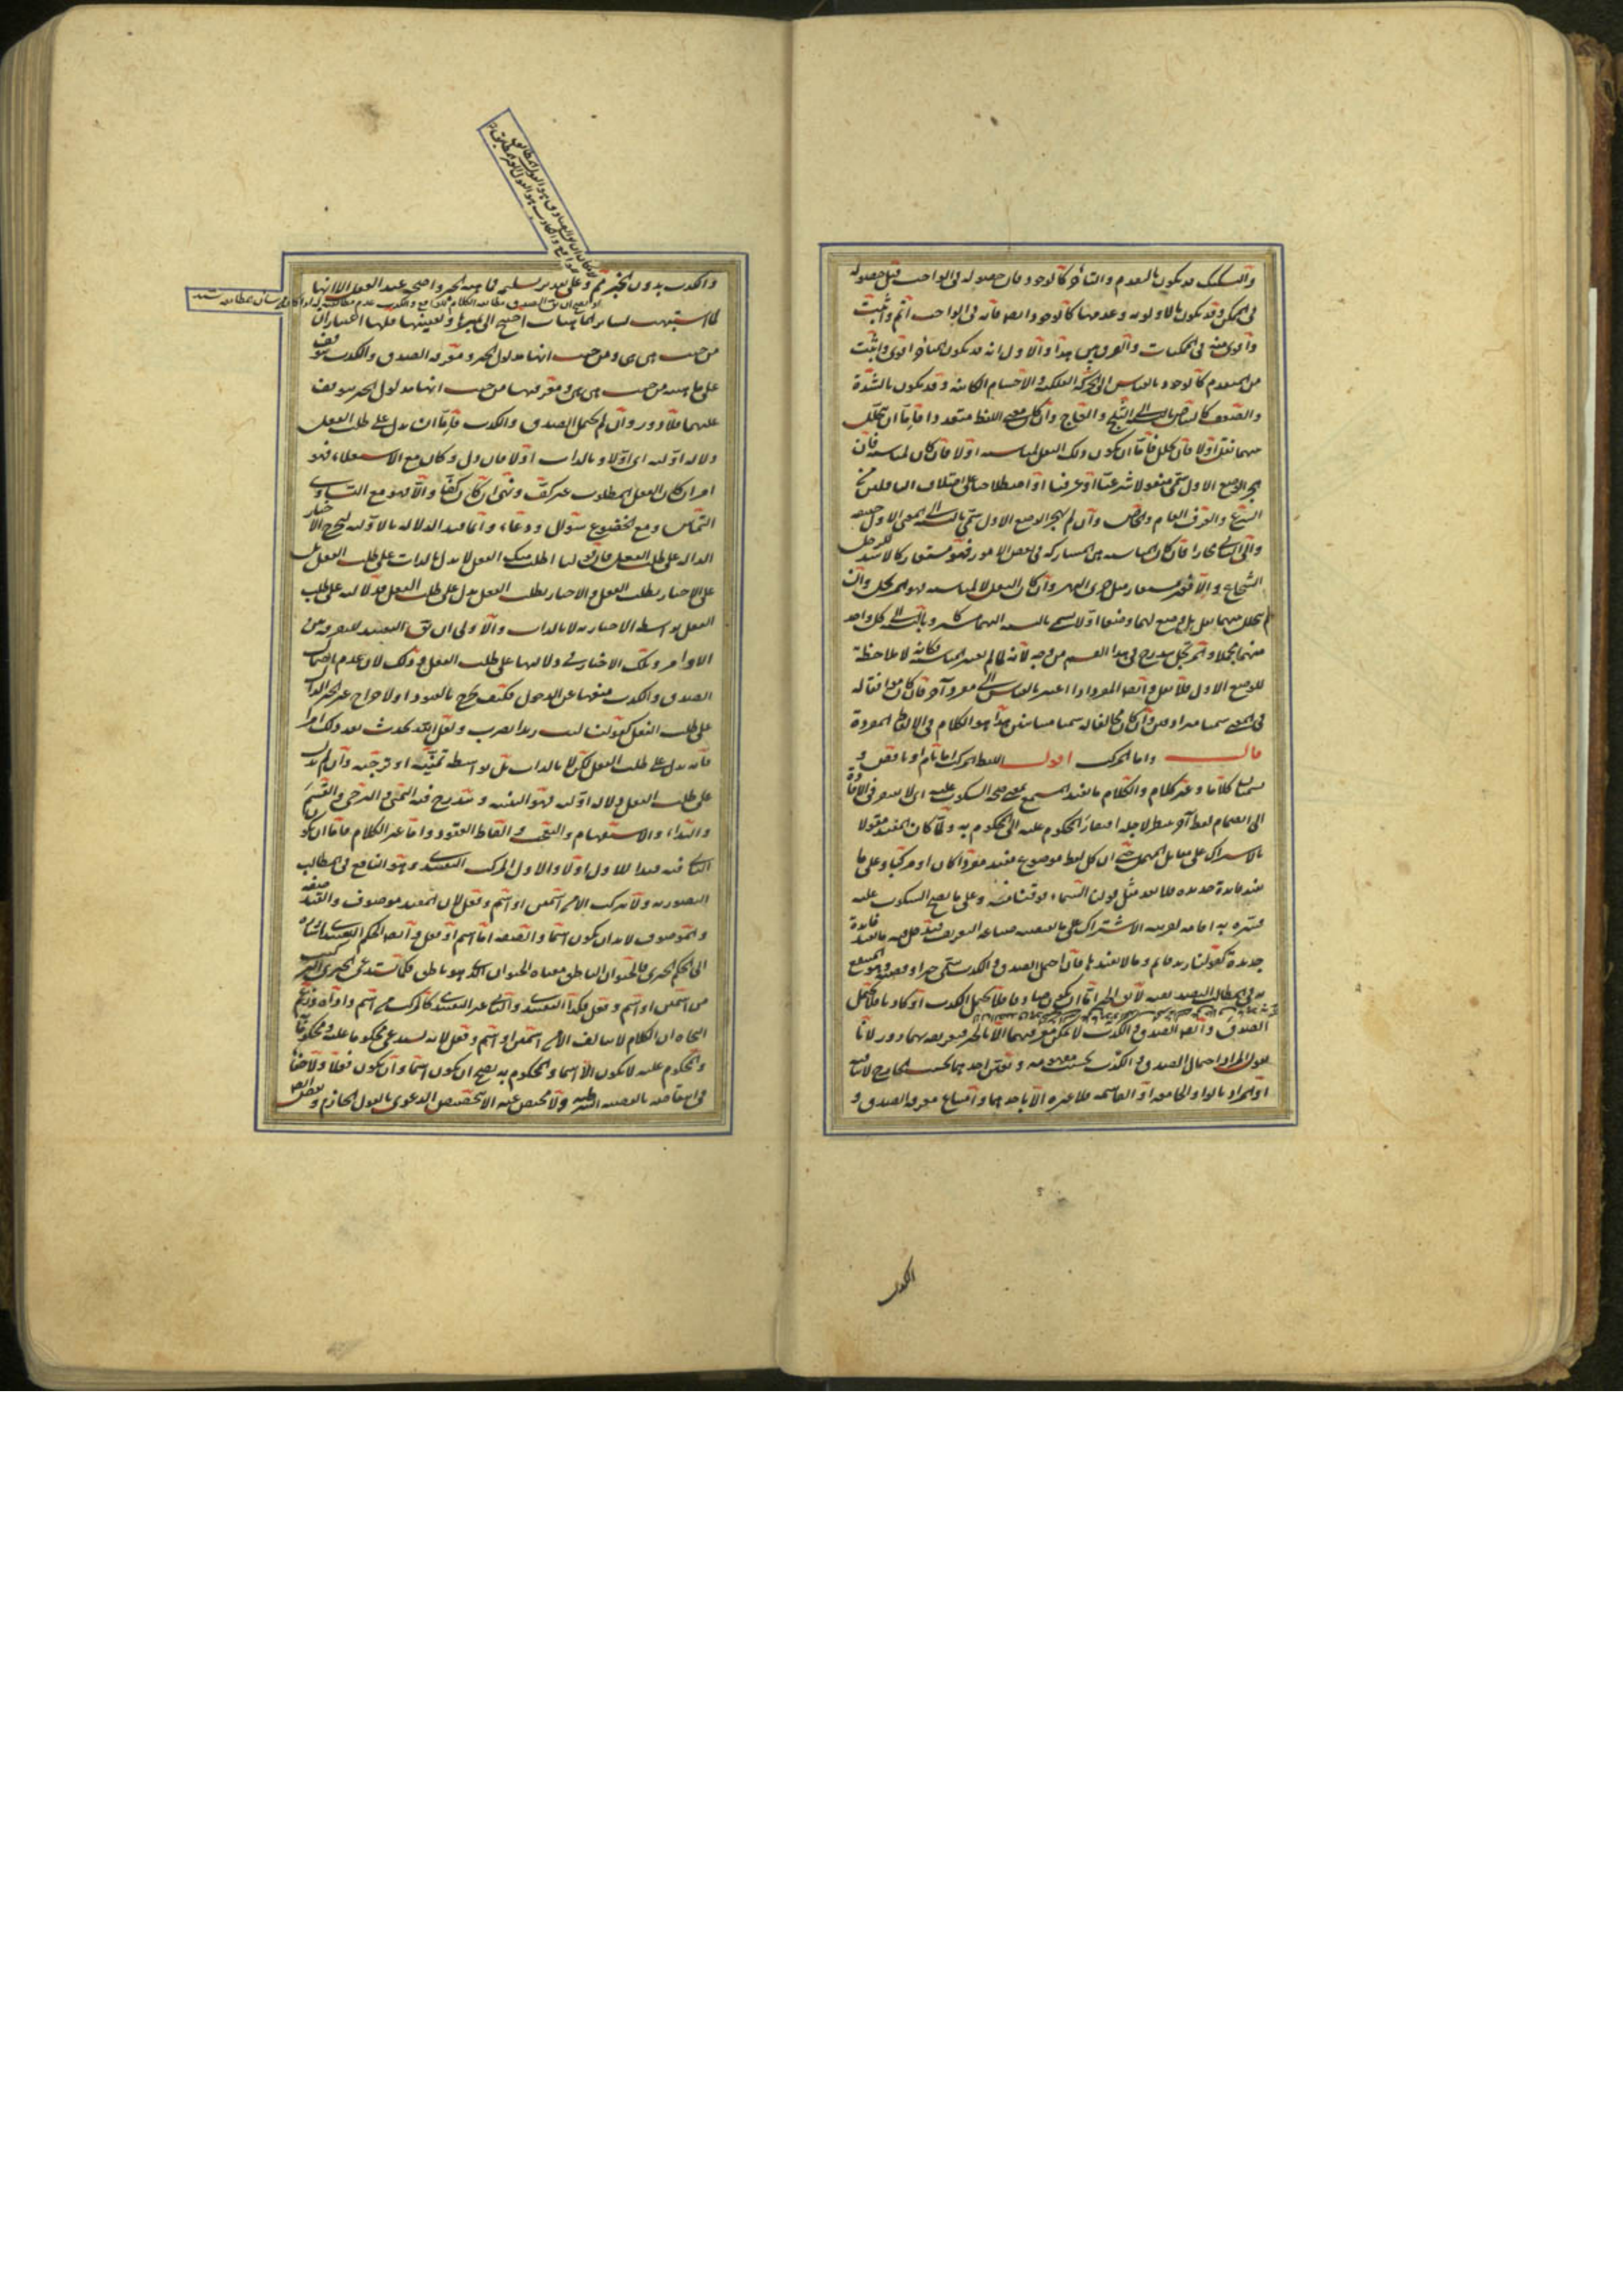 والتشكيك قد يكون بالتقدم والتأخر كالوجود فان حصوله فى الواجب قبل حصوله
فى الممكن وقد يكون بالاولوية وعدمها كالوجود ايضا فانه فى الواجب اتم واثبت
واقوى منه فى الممكنات والفرق بين هذا والاول انه قد يكون المتأخر اقوى واثبت
من المتقدم كالوجود بالقياس الى الحركة الفلكية والاجسام الكائنة وقد يكون بالشدة
والضعف كالبياض بالنسبة الى الثلج والعاج وان كان معنى اللفظ متعددا فاما ان يتخلل
بينهما نقل اولا فان تخلل فاما ان يكون ذلك النقل لمناسبة اولا فان كان لمناسبة فان
هجر الوضع الاول سمى منقولا شرعيا او عرفيا او اصطلاحيا على اختلاف الناقلين من
الشرع والعرف العام والخاص وان لم يهجر الوضع الاول سمى بالنسبة الى المعنى الاول حقيقة
والى الثانى مجازا فان كان المناسبة هى المشاركة فى بعض الامور فهو مستعار كالاسد للرجل
الشجاع والا فغير مستعار مثل جرى النهر وان كان النقل لا لمناسبة فهو المرتجل وان
لم يتخلل بينهما نقل بل وضع لهما وضعا اولا يسمى بالنسبة اليهما مشتركا وبالنسبة الى كل واحد
منهما مجملا والمرتجل مندرج فى هذا القسم من وجه لانه لما لم يعتبر المناسبة فكانه لا ملاحظة
للوضع الاول فلا نقل وايضا المفرد اذا اعتبر بالقياس الى مفرد آخر فان كان موافقا له
فى المعنى سميا مترادفين وان كان مخالفا له سميا متباينين هذا هو الكلام فى الالفاظ المفردة
قال واما المركب اقول اللفظ المركب اما تام او ناقص و
يسميان كلاما وغير كلام والكلام ما يفيد المستمع بمعنى صحة السكوت عليه اى لا يفتقر فى الافادة
الى انضمام لفظ آخر ينتظر لاجله افتقار المحكوم عليه الى المحكوم به ولما كان المفيد مقولا
بالاشتراك على مقابل المهمل حتى ان كل لفظ موضوع مفيد مفردا كان او مركبا وعلى ما
يفيد فائدة جديدة فلا يعد مثل قولنا السماء فوقنا منه وعلى ما يصح السكوت عليه
فسره به اقامة لقرينة الاشتراك على ما يقتضيه صناعة التعريف فيدخل فيه ما يفيد فائدة
جديدة كقولنا زيد قائم وما لا يفيدها فان احتمل الصدق والكذب سمى خبرا وقضية وهو المنتفع
به فى المطالب التصديقية لا يقال الخبر اما ان يكون صادقا فلا يحتمل الكذب او كاذبا فلا يحتمل
الصدق وايضا الصدق والكذب لا يمكن معرفتهما الا بالخبر فتعريفه بهما دور لانا
نقول المراد احتمال الصدق والكذب بحسب مفهومه وتعين احدهما بحسب الخارج لا ينافيه
او المراد بالواو الجامعة او القاسمة فلا عبرة الا باحدهما وامتناع معرفة الصدق و
الكذب
والكذب بدون الخبر تم وعلى تقدير تسليمه فماهية الخبر واضحة عند العقل الا انها
لما اشتبهت بسائر الماهيات احتيج الى تمييزها وتعيينها فلها اعتباران
من حيث هى هى ومن حيث انها مدلول الخبر ومعرفة الصدق والكذب يتوقف
على ماهيته من حيث هى هى ومعرفتها من حيث انها مدلول الخبر يتوقف
عليهما فلا دور وان لم يحتمل الصدق والكذب فاما ان يدل على طلب الفعل
دلالة اولية اى اولا وبالذات اولا فان دل وكان مع الاستعلاء فهو
امر ان كان الفعل المطلوب غير كف ونهى ان كان كفا والا فهو مع التساوى
التماس ومع الخضوع سؤال ودعاء وانما قيد الدلالة بالاولية ليخرج الاخبار
الدالة على طلب الفعل فان قولنا اطلب منك الفعل لا يدل بالذات على طلب الفعل بل
على الاخبار بطلب الفعل والاخبار بطلب الفعل يدل على طلب الفعل فدلالته على طلب
الفعل بواسطة الاخبار به لا بالذات والاولى ان يق التقييد للتفرقة بين
الاوامر وتلك الاخبار فى دلالتها على طلب الفعل وذلك لان عدم احتمال
الصدق والكذب منعها عن الدخول فكيف يخرج بالقيود او لاخراج غير الخبر الدال
على طلب الفعل كقولنا ليت زيدا يضرب ولعل الله يحدث بعد ذلك امرا
فانه يدل على طلب الفعل لكن لا بالذات بل بواسطة تمنيه او ترجيه وان لم يدل
على طلب الفعل دلالة اولية فهو التنبيه ويندرج فيه التمنى والترجى والقسم
والنداء والاستفهام والتعجب والفاظ العقود واما غير الكلام فاما ان يكون
الثانى فيه قيدا للاول اولا والاول المركب التقييدى وهو النافع فى المطالب
التصورية ولا يتركب الا من اسمين او اسم وفعل لان المقيد موصوف والقيد صفة
والموصوف لا بد ان يكون اسما والصفة اما اسم او فعل وايضا الحكم التقييدى اشارة
الى الحكم الخبرى فالحيوان الناطق معناه الحيوان الذى هو ناطق فكما يستدعى الخبرى التركيب
من اسمين او اسم وفعل فكذا التقييدى والثانى غير التقييدى كالمركب من اسم واداة وزعم
النحاة ان الكلام لا يتألف الا من اسمين او اسم وفعل لانه يستدعى محكوما عليه ومحكوما به
والمحكوم عليه لا يكون الا اسما والمحكوم به يصح ان يكون اسما وان يكون فعلا ولا خفاء
فى انتقاضه بالقضية الشرطية ولا مخلص عنه الا بتخصيص الدعوى بالقول الجازم وبعض